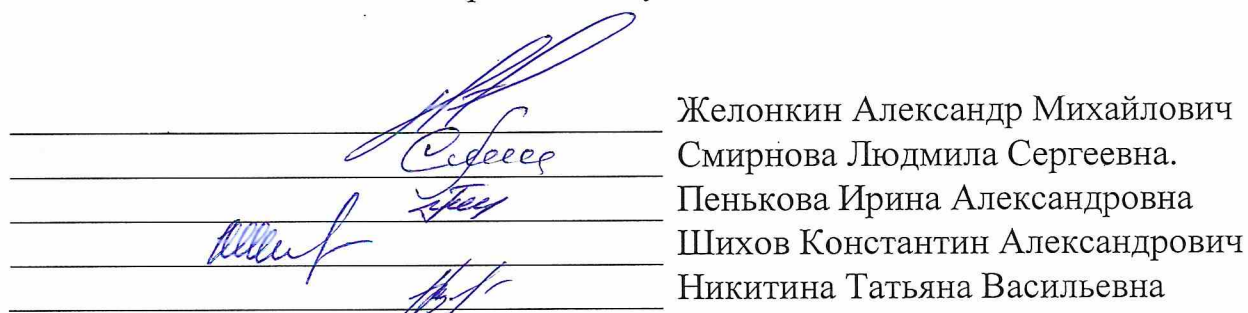 Желонкин Александр Михайлович
Смирнова Людмила Сергеевна.
Пенькова Ирина Александровна
Шихов Константин Александрович
Никитина Татьяна Васильевна